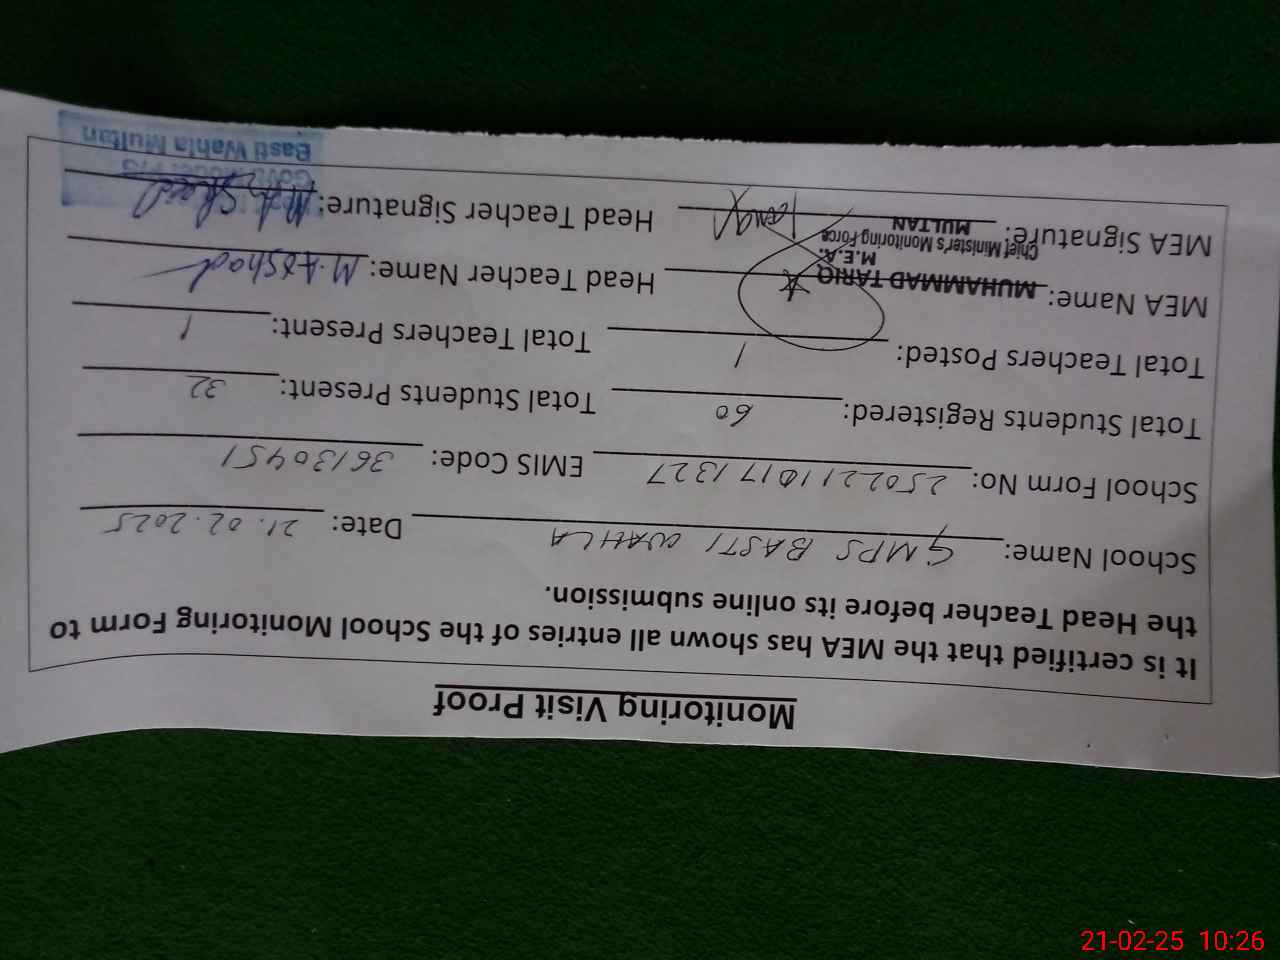 Monitoring Visit Proof
It is certified that the MEA has shown all entries of the School Monitoring Form to
the Head Teacher before its online submission.
School Name: GMPS BASTI WAHLA Date: 21.02.2025
School Form No: 25022110171327 EMIS Code: 36130451
Total Students Registered: 60 Total Students Present: 32
Total Teachers Posted: 1 Total Teachers Present: 1
MEA Name: MUHAMMAD TARIQ Head Teacher Name: M. Arshad
M.E.A.
Chief Minister's Monitoring Force
MULTAN
MEA Signature: Head Teacher Signature: M. Arshad
Basti Wahla Multan
21-02-25 10:26